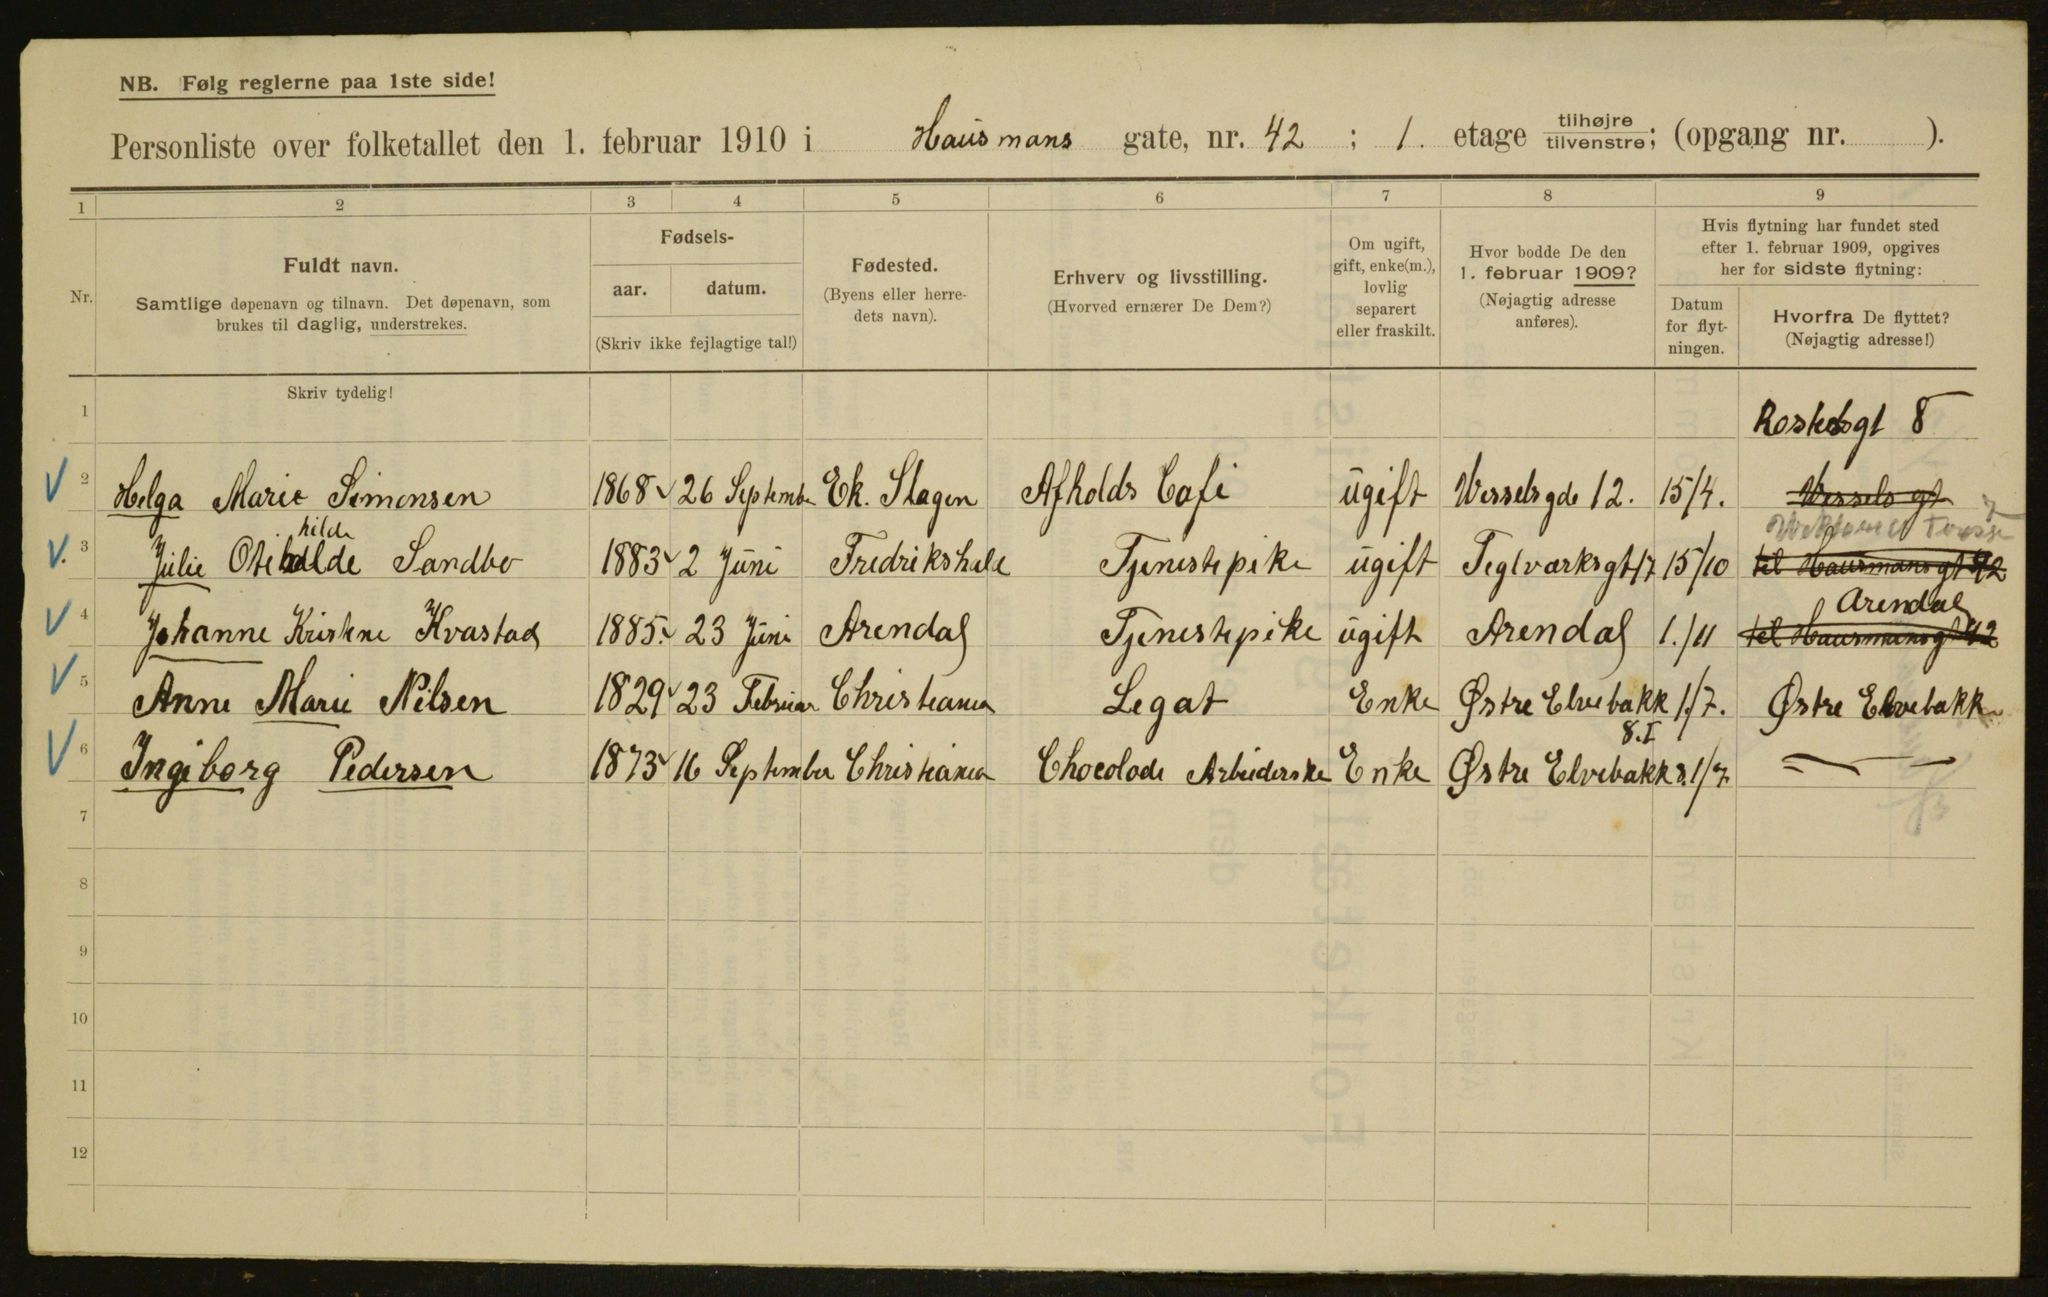 NB. Følg reglerne paa 1ste side!
Personliste over folketallet den 1. februar 1910 i Hausmans gate, nr. 42 ; 1. etage tilhøjre/tilvenstre; (opgang nr. ).
1 2 3 4 5 6 7 8 9
Nr.
Fuldt navn.
Samtlige døpenavn og tilnavn. Det døpenavn, som
brukes til daglig, understrekes.
Fødsels-
aar. datum.
(Skriv ikke fejlagtige tal!)
Fødested.
(Byens eller herre-
dets navn).
Erhverv og livsstilling.
(Hvorved ernærer De Dem?)
Om ugift,
gift, enke(m.),
lovlig
separert
eller fraskilt.
Hvor bodde De den
1. februar 1909?
(Nøjagtig adresse
anføres).
Hvis flytning har fundet sted
efter 1. februar 1909, opgives
her for sidste flytning:
Datum
for flyt-
ningen.
Hvorfra De flyttet?
(Nøjagtig adresse!)
Skriv tydelig!
1 8
2 Helga Marie Simonsen 1868 26 September Ek. Slagen Afholds Cafe ugift Wesselsgde 12. 15/4. Wessels gt
hilde
3 Julie Sandbo 1883 2 Juni Fredrikshald Tjenestepike ugift Teglværksgt 17 15/10 til Hausmansgt 42
Arendal
4 Johanne Kristine Kvastad 1885. 23 Juni Arendal Tjenestepike ugift Arendal 1./11 til Hausmansgt 42
5 Anne Marie Nilsen 1829 23 Februar Christiania Legat Enke Østre Elvebakk 1/7. Østre Elvebakk
8.I
6 Ingeborg Pedersen 1873 16 September Christiania Chocolode Arbeiderske Enke Østre Elvebakk 8. 1/7. — " —
7
8
9
10
11
12